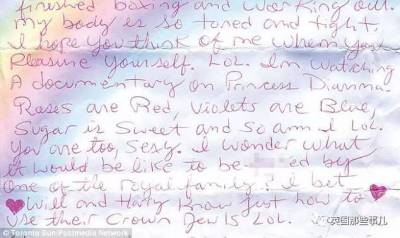 finished boxing and working out.
my body is so toned and tight.
I hope you think of me when you
Pleasure yourself. Lol. I'm watching
A documentary on Princess Dianna.
Roses are Red, Violets are Blue,
Sugar is Sweet and so amm I Lol.
You are too, Sexy. I wonder what
it would be like to be ed by
one of the royal family? I bet
Will and Harry know just how to
use their Crown Jewls Lol.
© Toronto Sun Postmedia Network
英国那些事儿